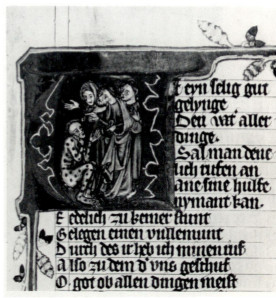 t eyn selig gut
gelynge
Den vat aller
dinge.
Sal man dene
lich rufen an
ane sine hulfe
nymant kan.
E edelich zu keiner stunt
Gelegen einen vullemunt
Durch des ir heb ich minen ruf
Also zu dem d' vns geschuf
O got ob allen dingen meist